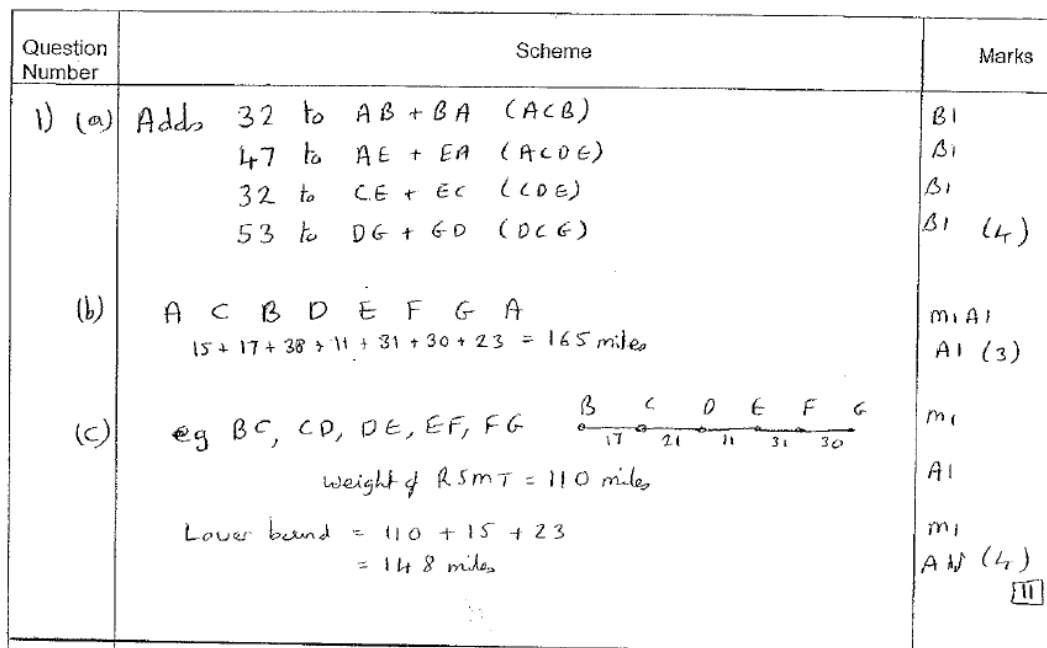 Question Number Scheme Marks
1) (a) Adds 32 to AB + BA (ACB) B1
47 to AE + EA (ACDE) B1
32 to CE + EC (CDE) B1
53 to DG + GD (DCG) B1 (4)
(b) A C B D E F G A M1 A1
15 + 17 + 38 + 11 + 31 + 30 + 23 = 165 miles A1 (3)
B C D E F G
(c) eg BC, CD, DE, EF, FG M1
17 21 11 31 30
weight of RSMT = 110 miles A1
Lower bound = 110 + 15 + 23 M1
= 148 miles A1 (4)
11